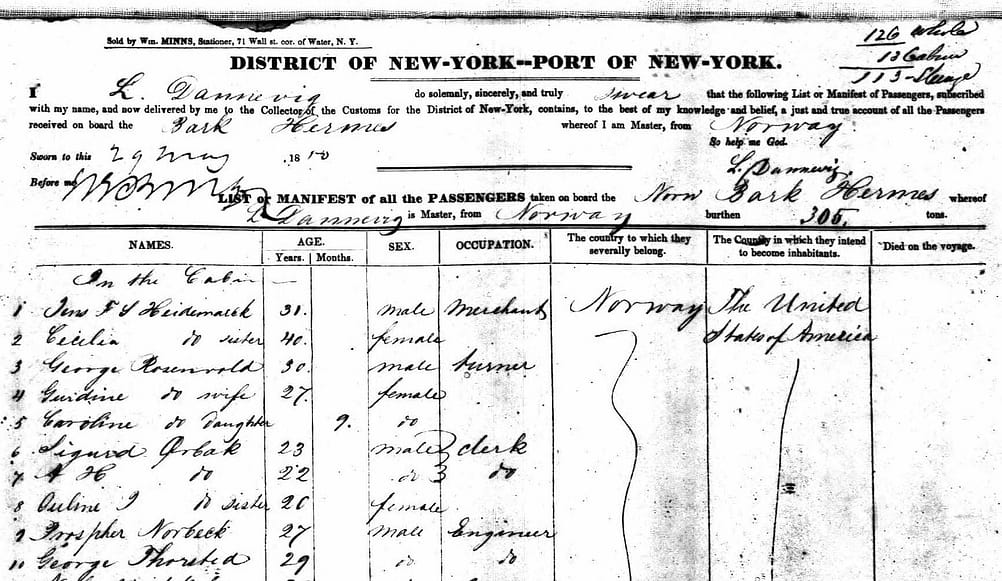 126 whole
13 Cabin
113 - Steerage
Sold by Wm. MINNS, Stationer, 71 Wall st. cor. of Water, N. Y.
DISTRICT OF NEW-YORK--PORT OF NEW-YORK.
I L. Dannevig do solemnly, sincerely, and truly swear that the following List or Manifest of Passengers, subscribed
with my name, and now delivered by me to the Collector of the Customs for the District of New-York, contains, to the best of my knowledge and belief, a just and true account of all the Passengers
received on board the Bark Hermes whereof I am Master, from Norway.
So help me God.
Sworn to this 29 May 1850
L. Dannevig
Before me
LIST or MANIFEST of all the PASSENGERS taken on board the Norn Bark Hermes whereof
L Dannevig is Master, from Norway burthen 305. tons.
NAMES. AGE. Years. Months. SEX. OCCUPATION. The country to which they severally belong. The Country in which they intend to become inhabitants. Died on the voyage.
In the Cabin —
1 Jens F S Heidemarck 31. male Merchant Norway The United
2 Cecilia do sister 40. female States of America
3 George Rosenvold 30. male turner
4 Guidine do wife 27. female
5 Caroline do daughter 9. do
6 Sigurd Ørbak 23 male clerk
7 A H do 22 do do
8 Ouline I do sister 20 female
9 Prospher Norbeck 27 male Engineer
10 George Thorsted 29 do do